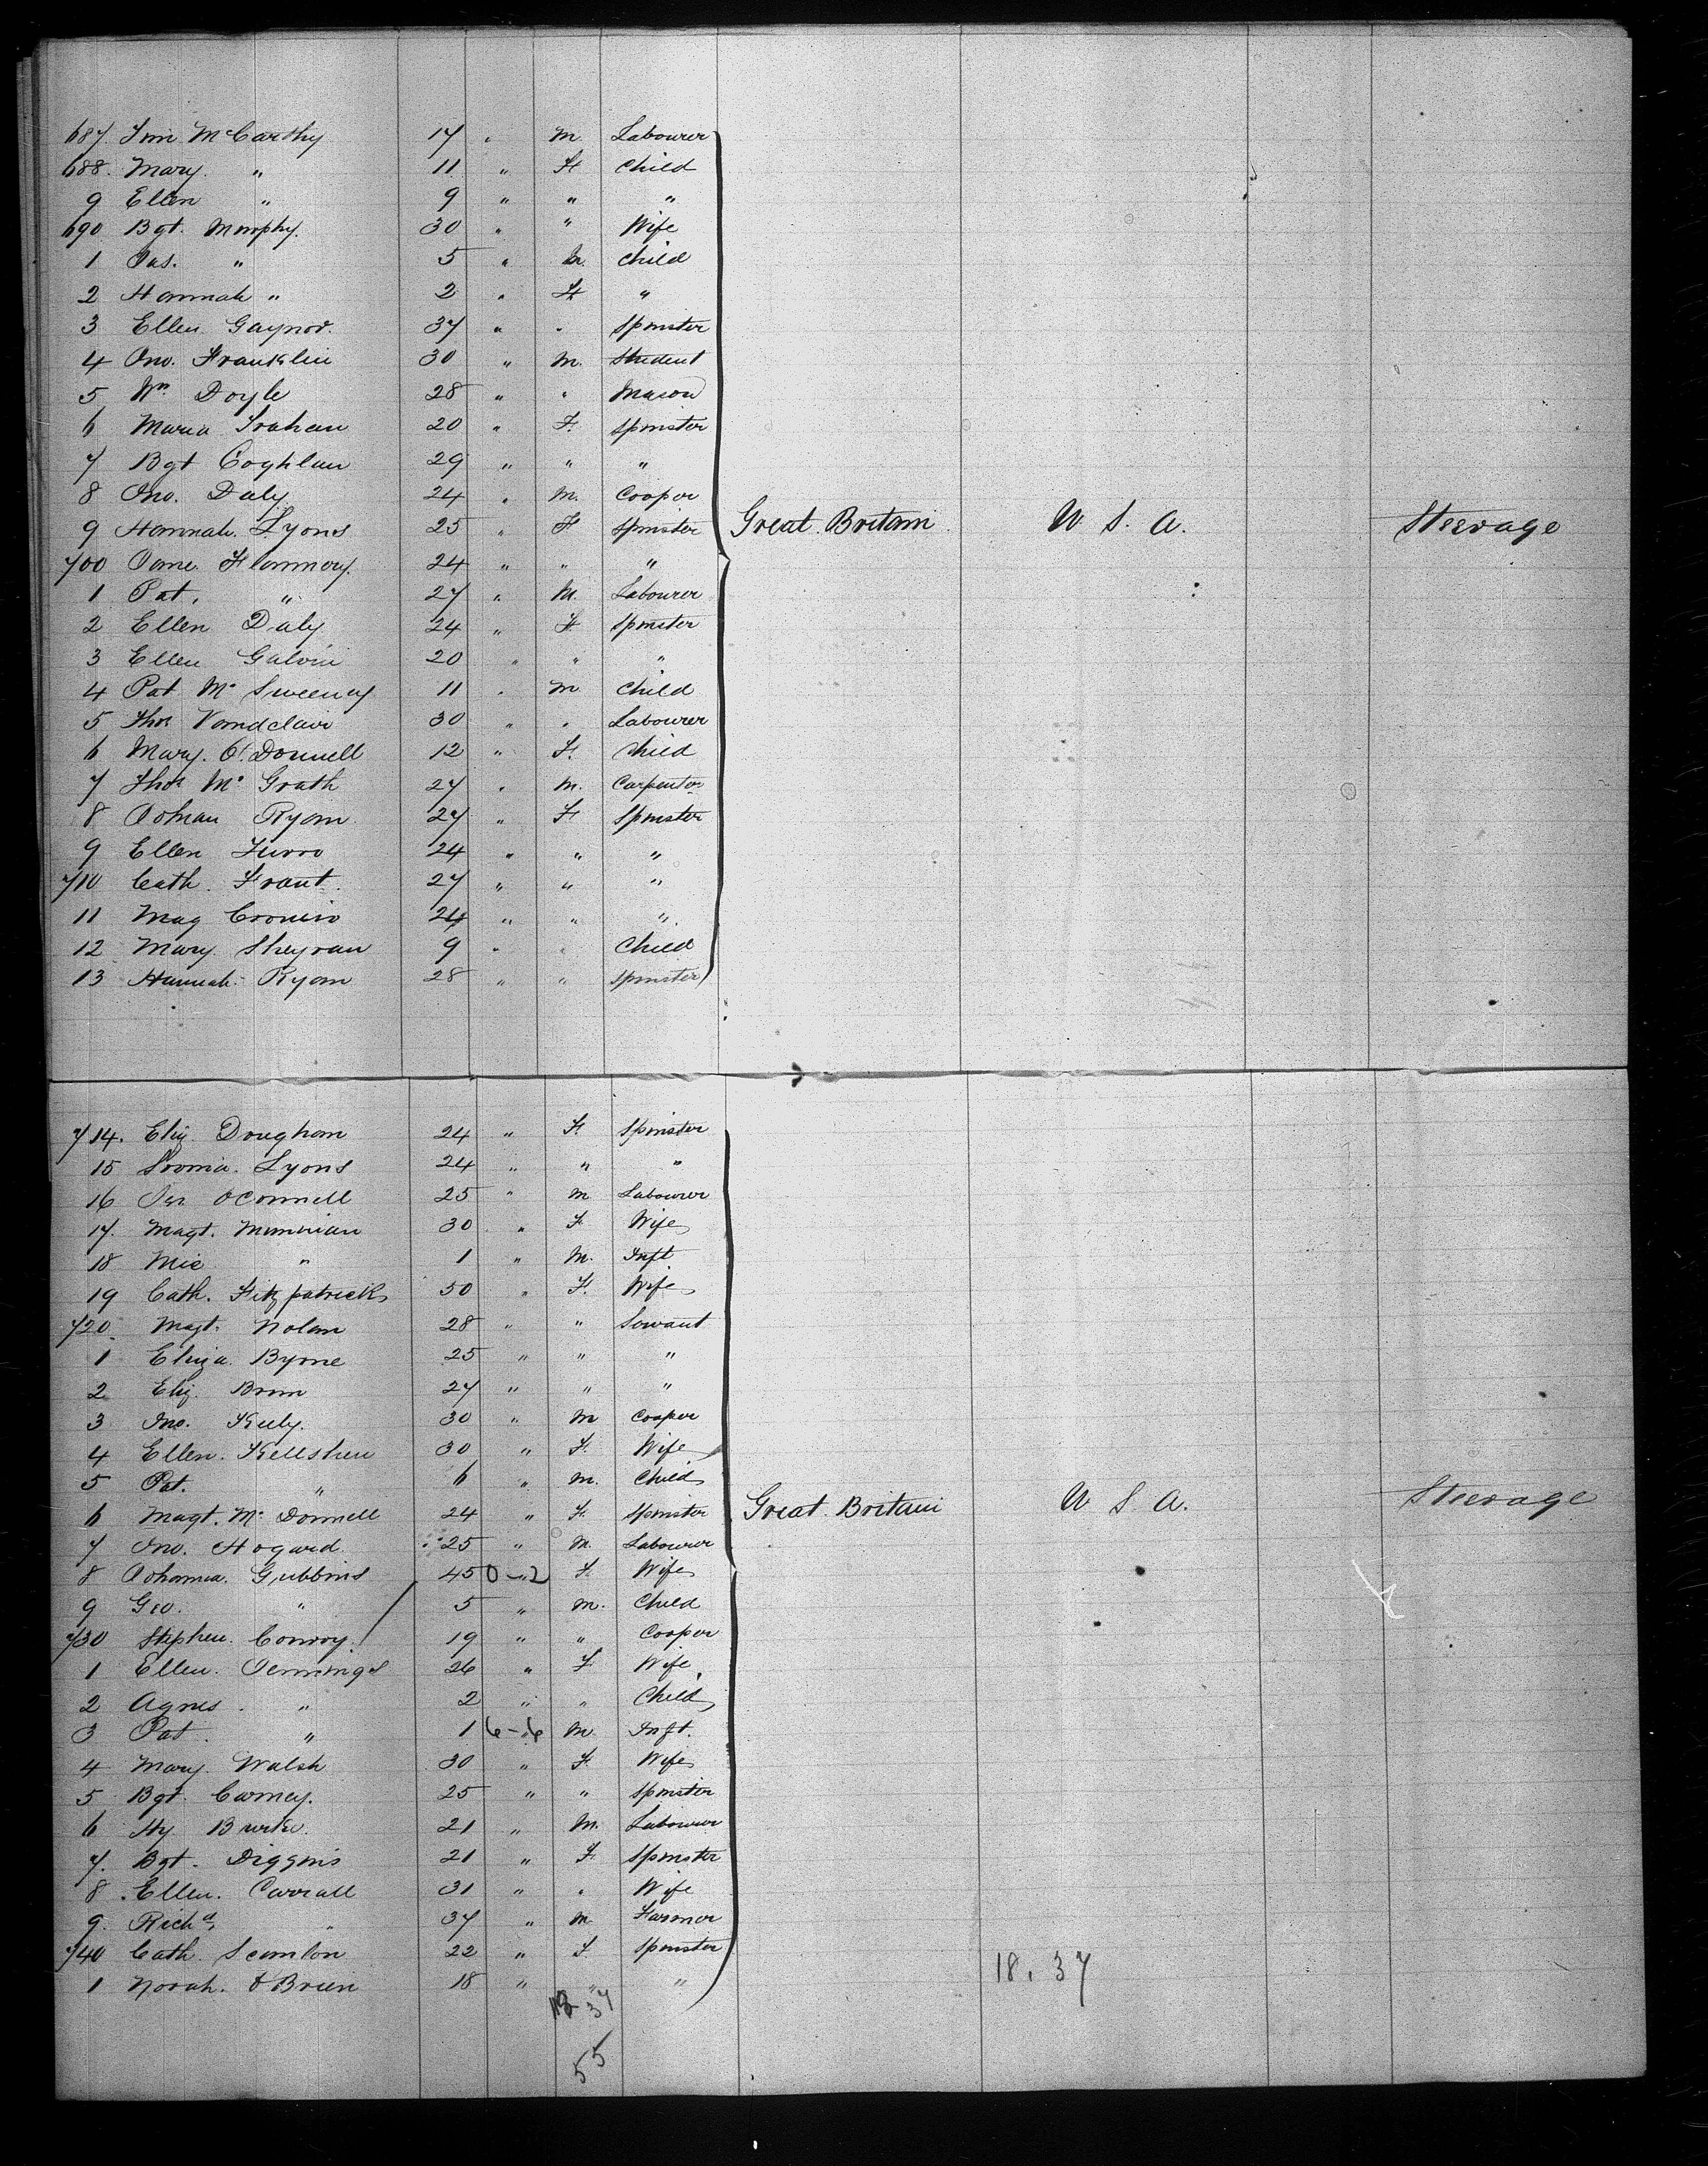 687. Tim McCarthy 17 " M Labourer
688. Mary " 11 " F Child
9 Ellen " 9 " " "
690 Bgt. Murphy. 30 " " Wife
1 Jas. " 5 " M. Child
2 Hannah " 2 " F "
3 Ellen Gaynor. 37 " " Spinster
4 Jno. Franklin 30 " M. Student
5 Wm Doyle 28 " " Mason
6 Maria 20 " F. Spinster
7 Bgt Coghlan 29 " " "
8 Jno. Daly 24 " M. Cooper
9 Hannah. Lyons 25 " F Spinster Great Britain U. S. A. Steerage
700 Jane Flannory. 24 " " "
1 Pat. " 27 " M. Labourer
2 Ellen Daly 24 " F Spinster
3 Ellen Galvin 20 " " "
4 Pat Mc Sweeney 11 " M Child
5 Thos 30 " " Labourer
6 Mary. O'Donnell 12 " F. Child
7 Thos Mc Grath 27 " M. Carpenter
8 Johan Ryan 27 " F Spinster
9 Ellen 24 " " "
710 Cath. Frant. 27 " " "
11 Mag Cronin 24 " " "
12 Mary Sheyran 9 " " Child
13 Hannah Ryan 28 " " Spinster
714. Eliz Doughan 24 " F. Spinster
15 Lyons 24 " " "
16 OConnell 25 " M Labourer
17. Magt. 30 " F Wife
18 Mic " 1 " M. Inft
19 Cath. Fitzpatrick 50 " F. Wife
720. Magt. Nolan 28 " " Servant
1 Eliza. Byrne 25 " " "
2 Eliz. 27 " " "
3 Jno. Kuly. 30 " M Cooper
4 Ellen. Kellshen 30 " F. Wife
5 Pat. " 6 " M. Child
6 Magt. Mc Donnell 24 " F. Spinster Great Britain U S A. Steerage
7 Jno. Hogard 25 " M. Labourer
8 Johanna. Gubbins 45 0-2 F. Wife
9 Geo. " 5 " M. Child
730 Stephen. Conroy. 19 " " Cooper
1 Ellen. Jennings 26 " F Wife
2 Agnes. " 2 " " Child
3 Pat. " 1 6-6 M Inft.
4 Mary. Walsh 30 " F Wife
5 Bgt. Carney. 25 " " Spinster
6 Hy Burke. 21 " M. Labourer
7. Bgt. Diggins 21 " F. Spinster
8. Ellen. Carrall 31 " " Wife
9. Richd. " 37 " M. Farmer
740 Cath. Scanlon 22 " F Spinster
1 Norah. O'Brien 18 " " "
18. 37
18 37
55